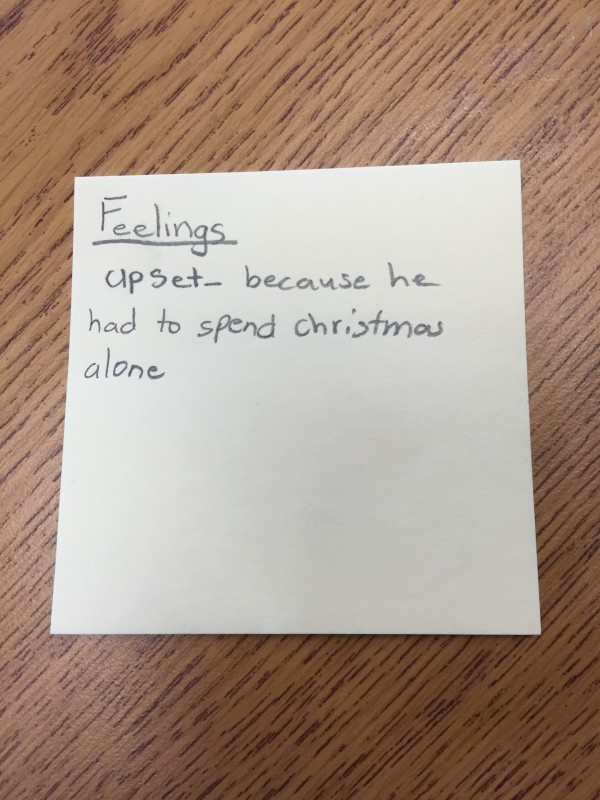 Feelings
upset- because he
had to spend christmas
alone